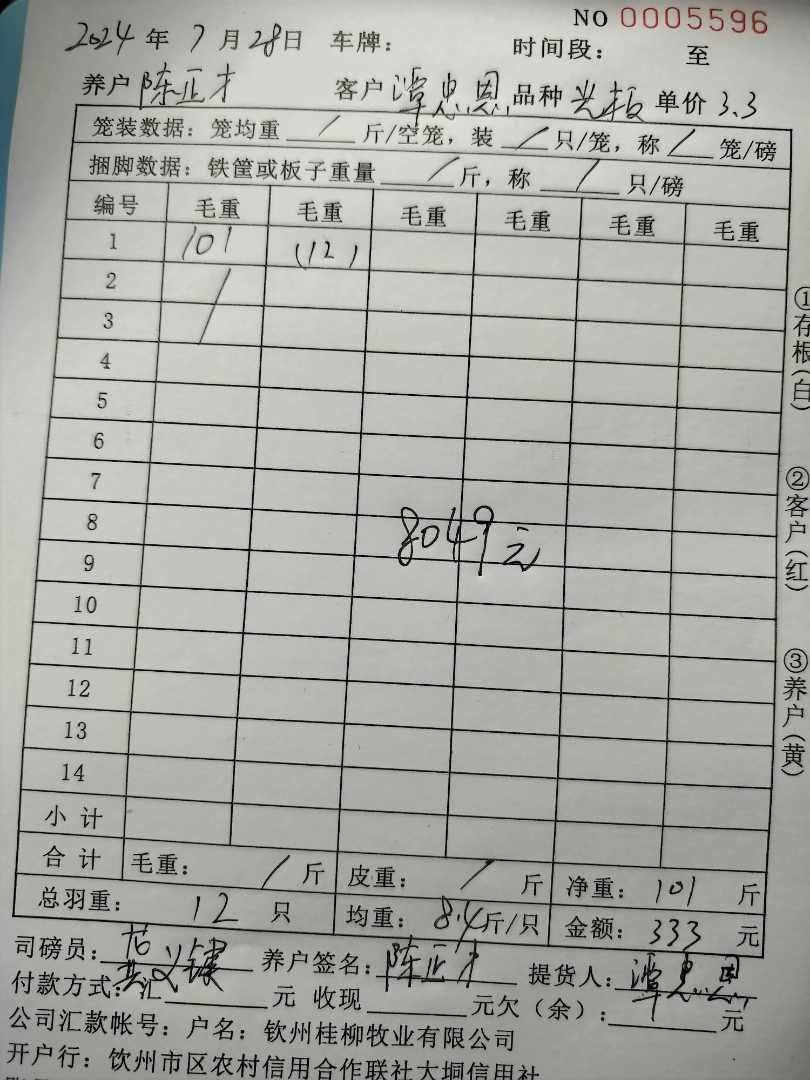 NO 0005596
2024 年 7 月 28日 车牌: 时间段: 至
养户 陈正才 客户 潭忠恩 品种 光板 单价 3.3
笼装数据: 笼均重 / 斤/空笼, 装 / 只/笼, 称 / 笼/磅
捆脚数据: 铁筐或板子重量 / 斤, 称 / 只/磅
编号 毛重 毛重 毛重 毛重 毛重 毛重
1 101 (12)
2 /
3
4
5
6
7
8
8049元
9
10
11
12
13
14
小计
合计 毛重: / 斤 皮重: / 斤 净重: 101 斤
总羽重: 12 只 均重: 8.4 斤/只 金额: 333 元
司磅员: 养户签名: 陈正才 提货人: 潭忠恩
付款方式: 汇 元 收现 元欠(余): 元
公司汇款帐号: 户名: 钦州桂柳牧业有限公司
开户行: 钦州市区农村信用合作联社大垌信用社
①存根(白)
②客户(红)
③养户(黄)